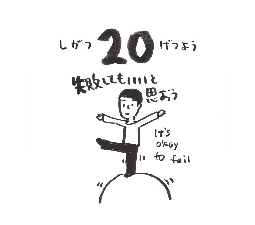 しがつ 20 げつよう
失敗してもいいと
思おう
It's
okay
to fail